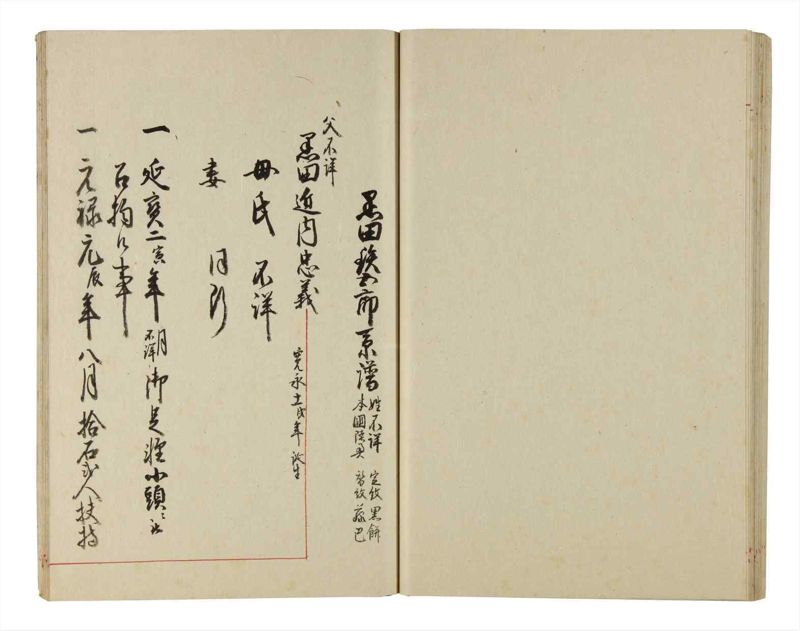 黒田 郎系譜
姓不詳 定紋黒餅
本國 替紋藤巴
父不詳
黒田近内忠義
寛永十一戌年誕生
母氏 不詳
妻 同断
一 延寶二寅年月朔不詳御足軽小頭ニ
被召抱候事
一 元禄元辰年八月拾石弐人扶持